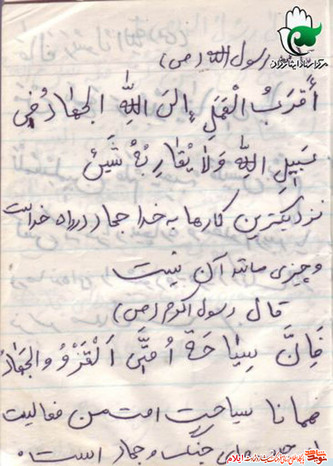 رسول الله (ص)
أَقْرَبُ الْعَمَلِ إِلَى اللَّهِ الْجِهَادُ فِي
سَبِيلِ اللَّهِ وَلَا يُقَارِبُهُ شَيْئ
نزدیکترین کارها به خدا جهاد در راه خداست
و چیزی مانند آن نیست
قال رسول اکرم (ص)
فَإِنَّ سِيَاحَةَ أُمَّتِي الْغَزْوُ وَالْجِهَادُ
همانا سیاحت امت من فعالیت
جنگ و جهاد است